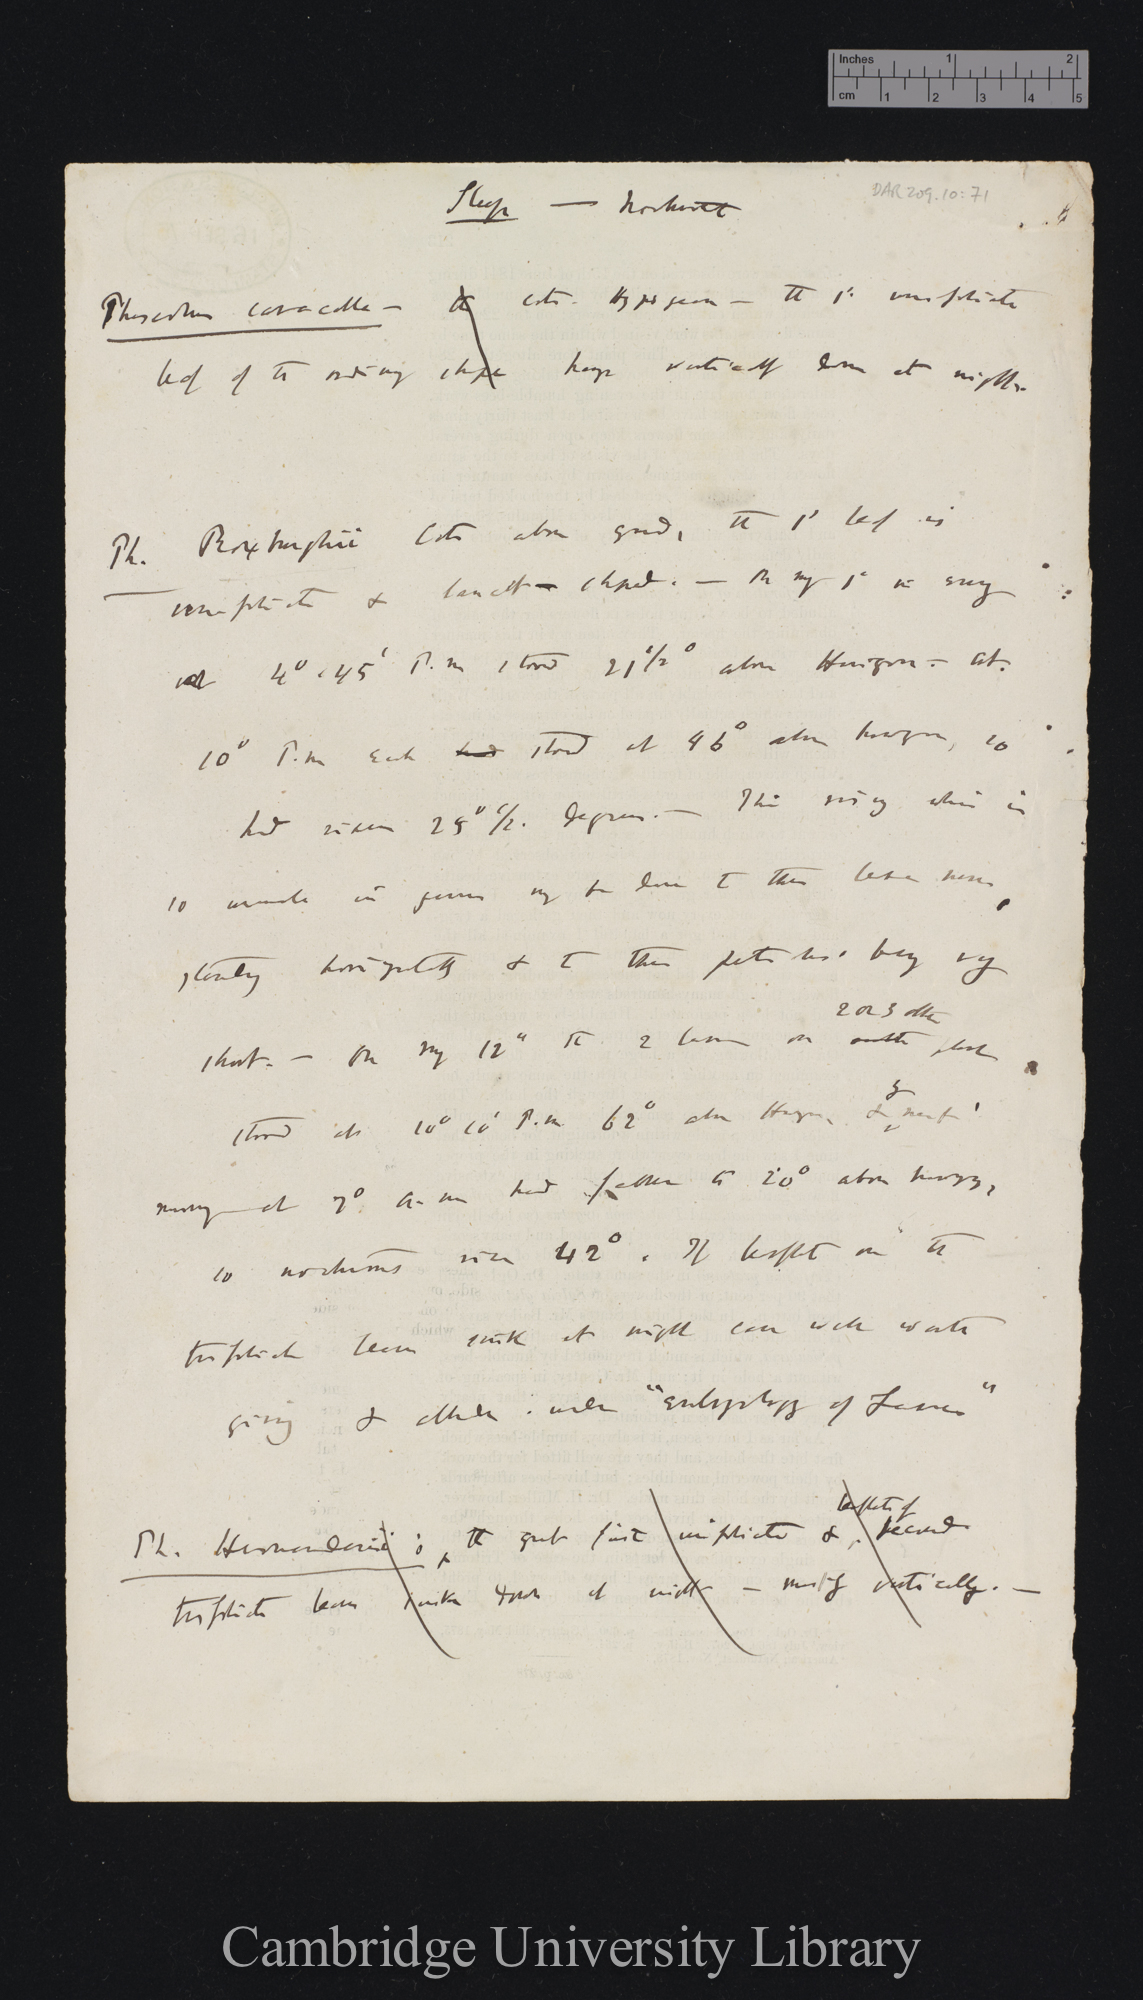 Inches 1 2
cm 1 2 3 4 5
DAR 209.10:71
Sleep —
Phaseolus caracalla — coty. Hypogean — the 1st unifoliate
leaf of the ordinary shape hangs vertically down at night.
Ph. Roxburghii Coty above ground, the 1st leaf is
unifoliate & shaped. — On my 1st
at 4° 45' P.m stood 21 1/2° above Horizon. — At
10° P.m each had stood at 46° above horizon, so
had risen 25° 1/2. degrees. — This rising which is
so in genus may be due to these leaves
standing horizontally & to their petioles being very
2 or 3 other
short. — On my 12th the 2 leaves on plants
stood at 10° 10' P.m 62° above Horizon, & next
morning at 7° a.m had fallen to 20° above horizon,
so nocturnal rise 42°. If leaflets on the
trifoliate leaves sink at night case well worth
giving & under "Embryology of Leaves"
leaflets of
Ph. Hernandesii : the great first unifoliate & second
trifoliate leaves sink down at night — vertically. —
Cambridge University Library